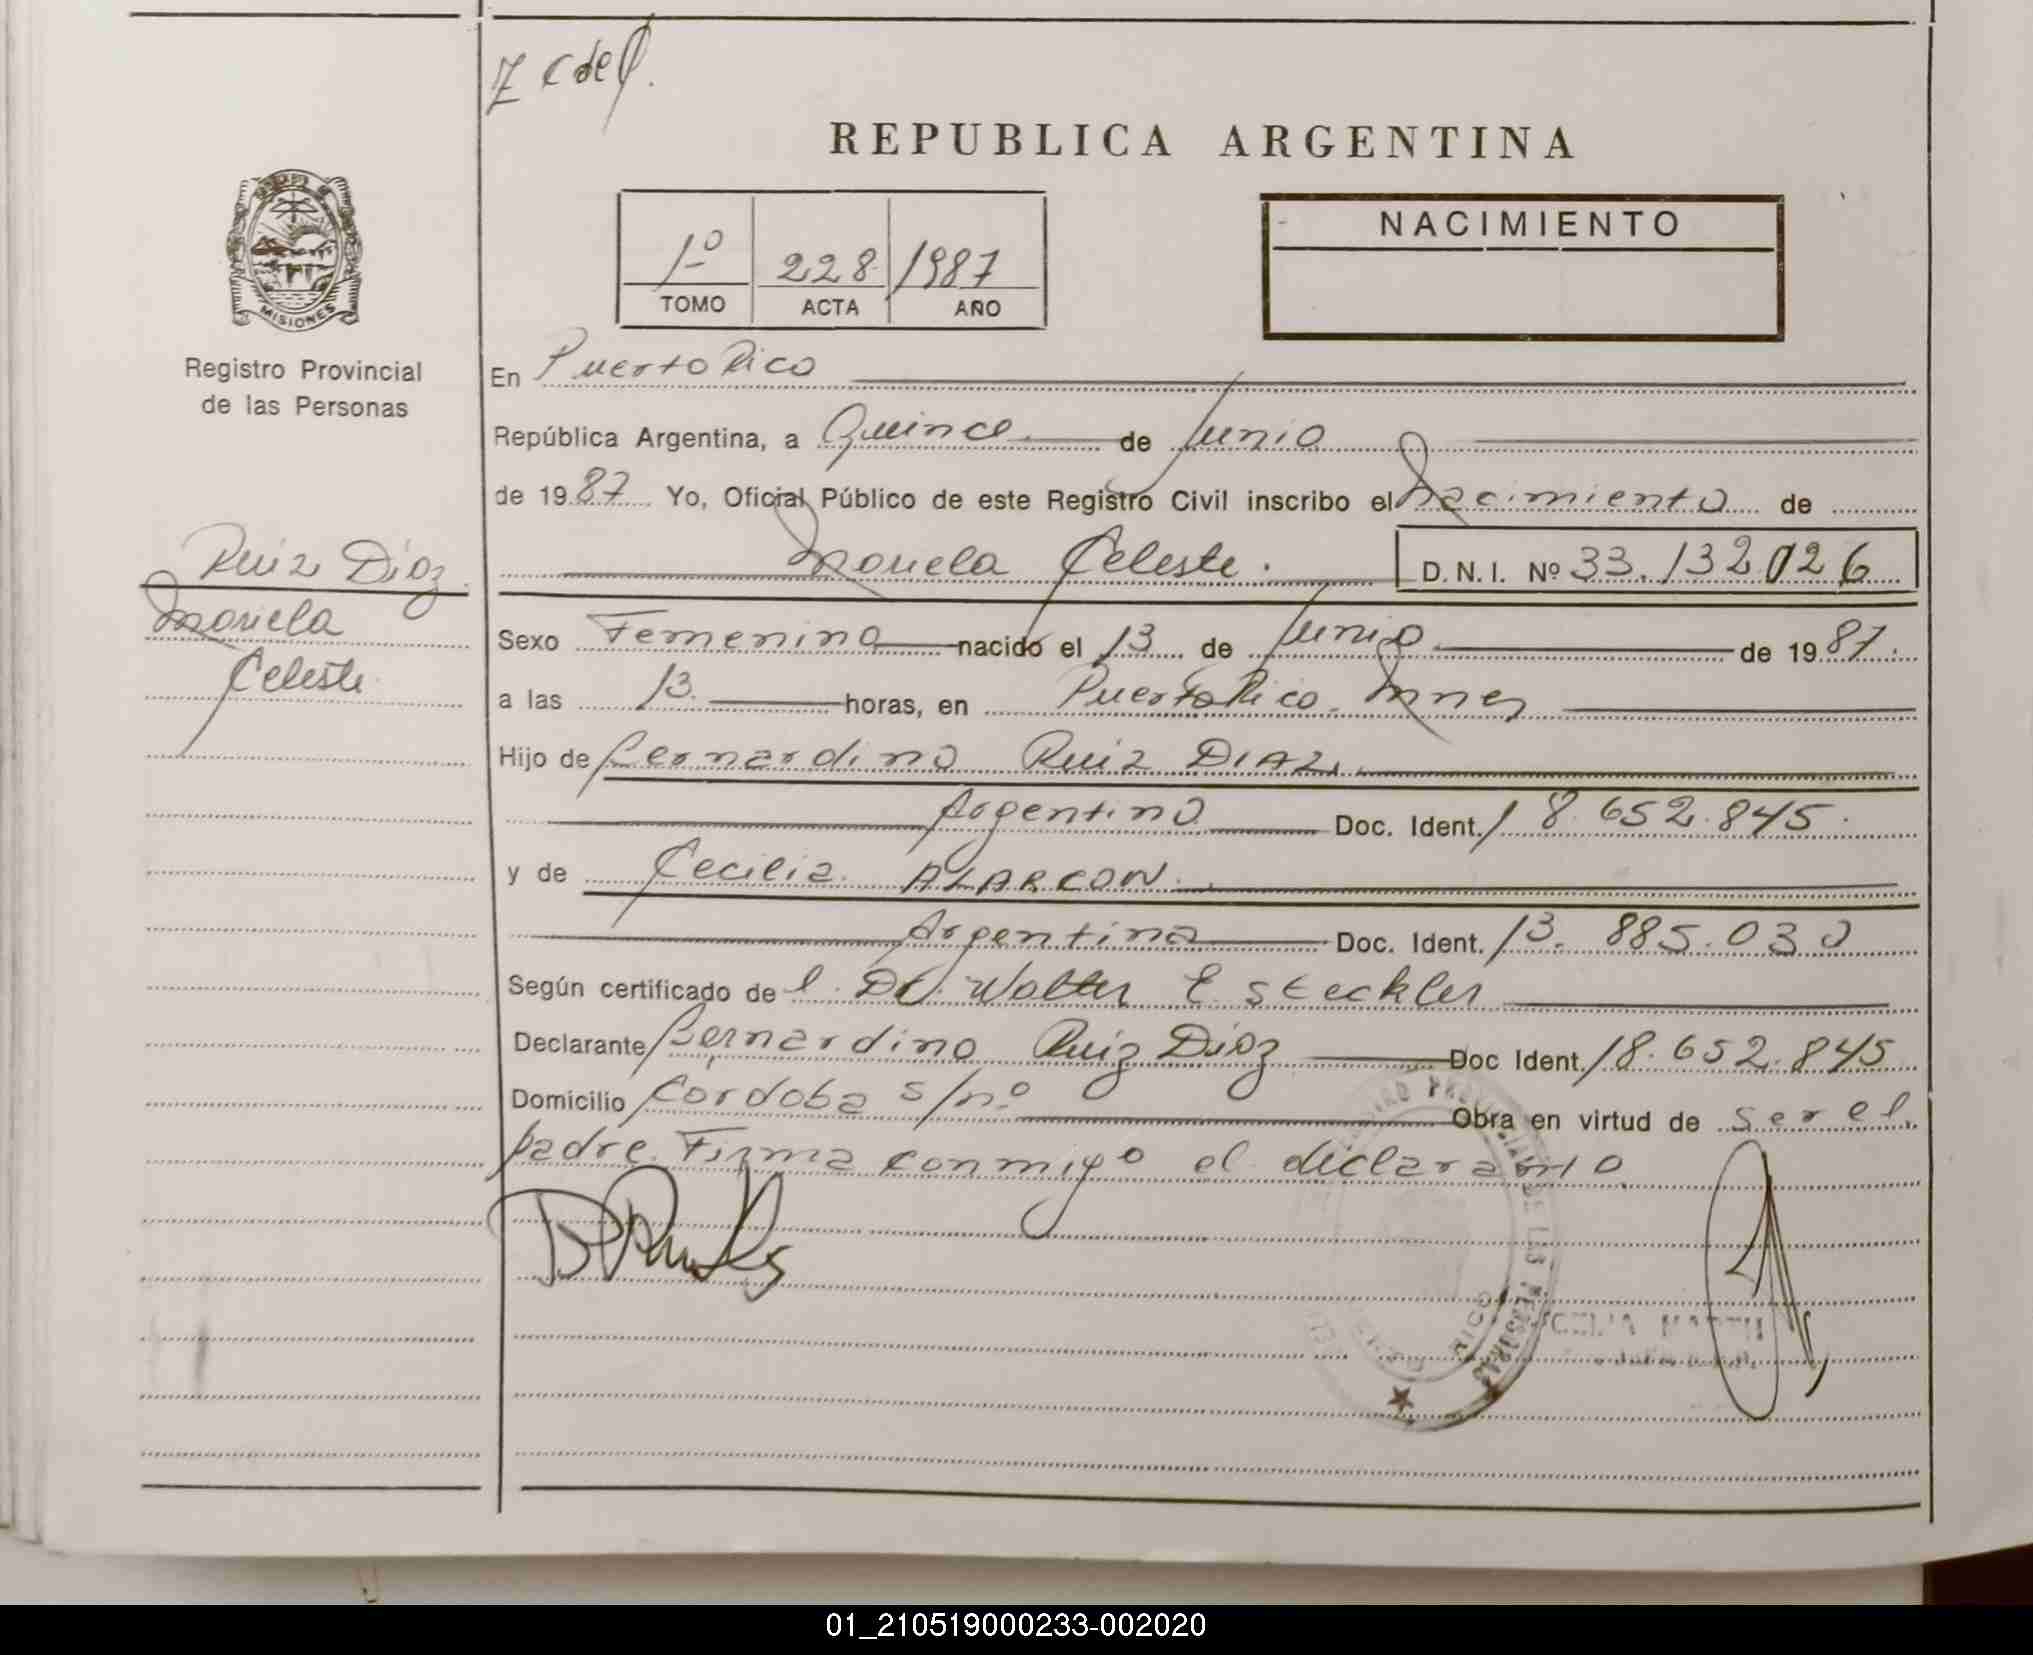 REPUBLICA ARGENTINA
MISIONES
Registro Provincial
de las Personas
Ruiz Diaz
Mariela
Celeste
1º 228 1987
TOMO ACTA AÑO
NACIMIENTO
En Puerto Rico
República Argentina, a Quince de Junio
de 1987 Yo, Oficial Público de este Registro Civil inscribo el Nacimiento de
Mariela Celeste. D.N.I. Nº 33.132.026
Sexo Femenino nacido el 13 de Junio de 1987.
a las 13. horas, en Puerto Rico. Mnes
Hijo de Bernardino Ruiz DIAZ.
Argentino Doc. Ident. 18.652.845.
y de Cecilia ALARCON.
Argentina Doc. Ident. 13.885.030
Según certificado del Dr. Walter E Steckler
Declarante Bernardino Ruiz Diaz Doc Ident. 18.652.845
Domicilio Cordoba s/nº Obra en virtud de ser el
padre. Firma conmigo el
01_210519000233-002020